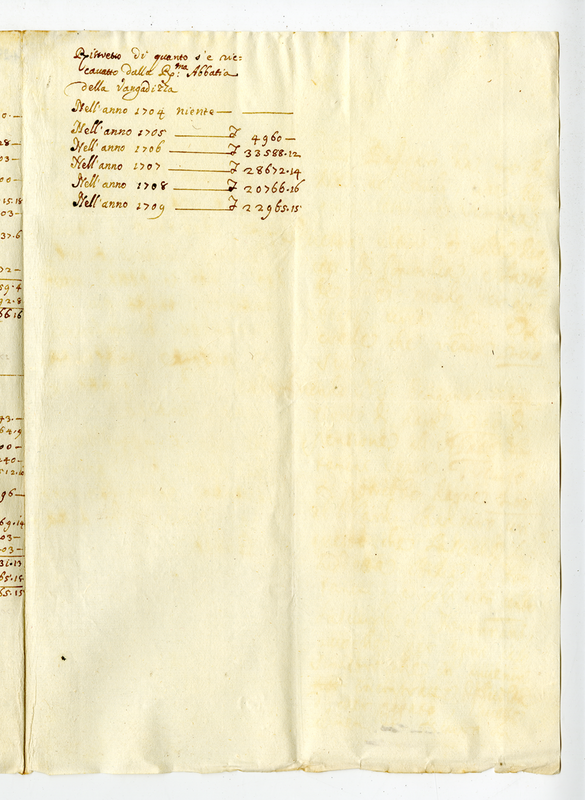 Ristretto di quanto s'è ric=
cavatto dalla Rp:ma Abbatia
della Vangadizza
Nell'anno 1704 niente —
Nell'anno 1705 — £ 4960 —
Nell'anno 1706 — £ 33588.12
Nell'anno 1707 — £ 28672.14
Nell'anno 1708 — £ 20766.16
Nell'anno 1709 — £ 22965.15